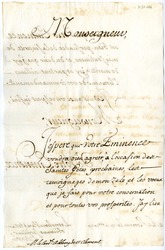 Monseigneur,
J'espere que Votre Eminence
voudra bien agreer a l'ocasion des
Saintes Fêtes prochaines, les
temoignages de mon zele et les voeux
que je fais pour votre conservation
et pour toutes vos prosperités. J'ay lieu